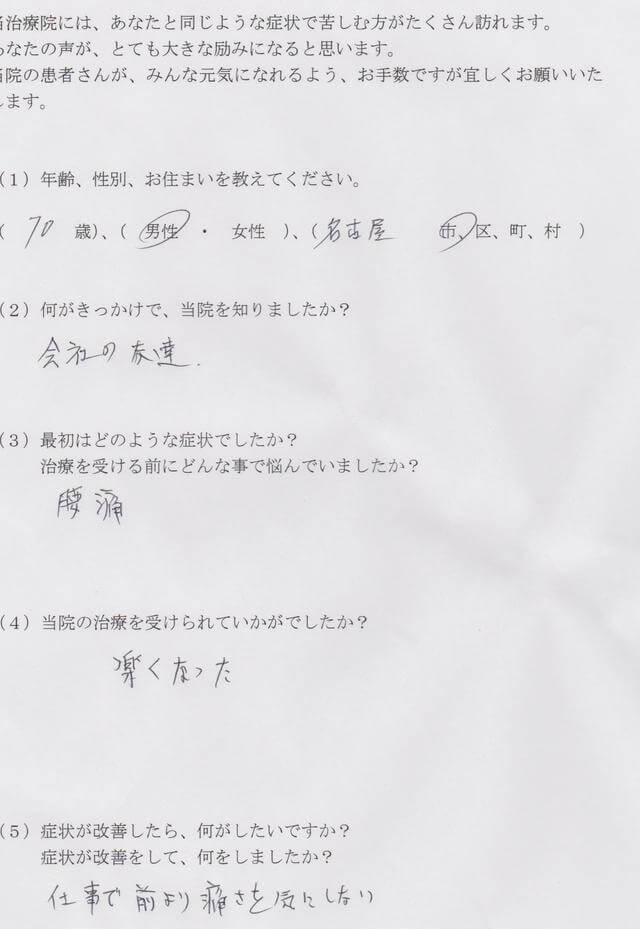 当治療院には、あなたと同じような症状で苦しむ方がたくさん訪れます。
あなたの声が、とても大きな励みになると思います。
当院の患者さんが、みんな元気になれるよう、お手数ですが宜しくお願いいた
します。
(1)年齢、性別、お住まいを教えてください。
( 70 歳)、( 男性 ・ 女性 )、( 名古屋 市、区、町、村 )
(2)何がきっかけで、当院を知りましたか?
会社の友達.
(3)最初はどのような症状でしたか?
治療を受ける前にどんな事で悩んでいましたか?
腰痛
(4)当院の治療を受けられていかがでしたか?
楽くなった
(5)症状が改善したら、何がしたいですか?
症状が改善をして、何をしましたか?
仕事で前より痛さを気にしない